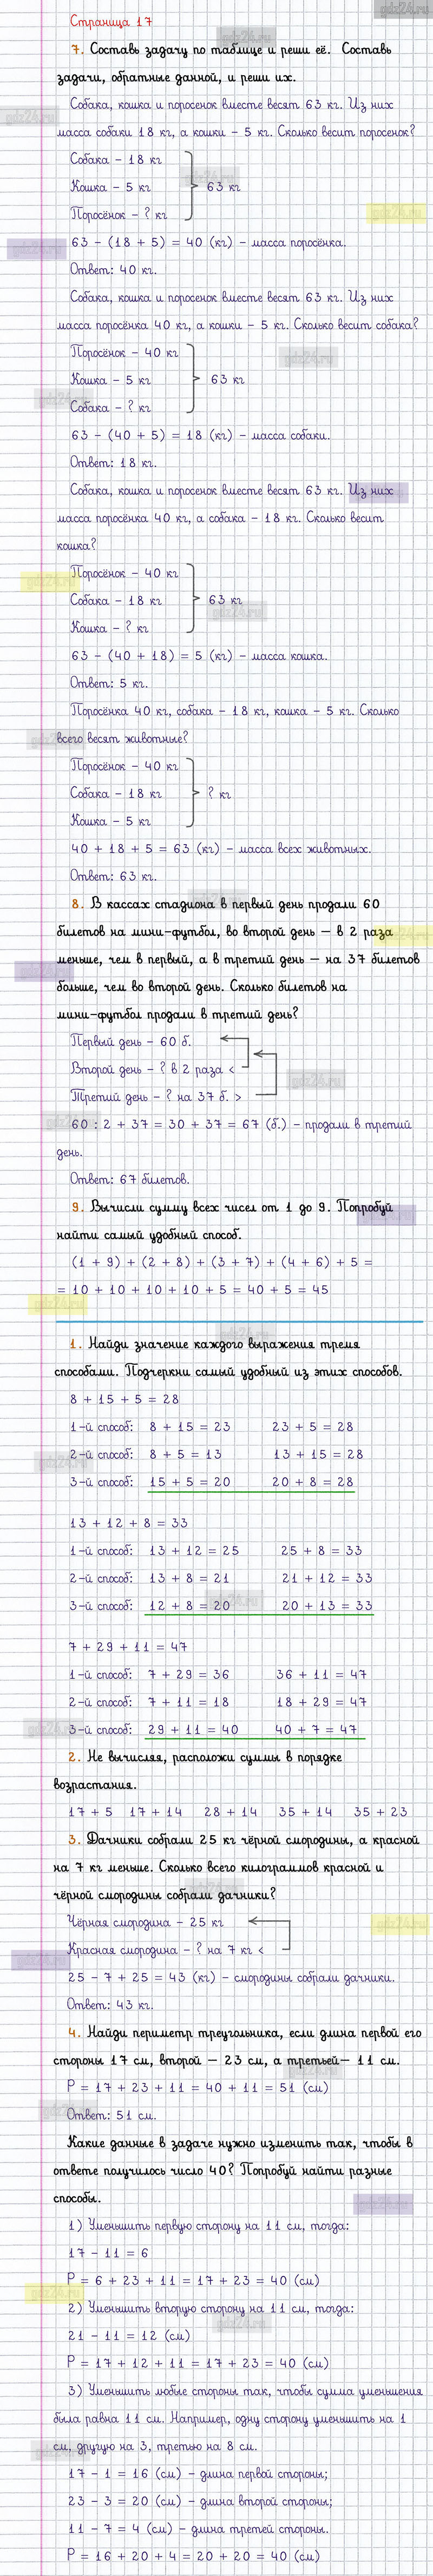 Страница 17
7. Составь задачу по таблице и реши её. Составь
задачи, обратные данной, и реши их.
Собака, кошка и поросенок вместе весят 63 кг. Из них
масса собаки 18 кг, а кошки – 5 кг. Сколько весит поросенок?
Собака – 18 кг
Кошка – 5 кг 63 кг
Поросёнок – ? кг
63 – (18 + 5) = 40 (кг) – масса поросёнка.
Ответ: 40 кг.
Собака, кошка и поросенок вместе весят 63 кг. Из них
масса поросёнка 40 кг, а кошки – 5 кг. Сколько весит собака?
Поросёнок – 40 кг
Кошка – 5 кг 63 кг
Собака – ? кг
63 – (40 + 5) = 18 (кг) – масса собаки.
Ответ: 18 кг.
Собака, кошка и поросенок вместе весят 63 кг. Из них
масса поросёнка 40 кг, а собака – 18 кг. Сколько весит
кошка?
Поросёнок – 40 кг
Собака – 18 кг 63 кг
Кошка – ? кг
63 – (40 + 18) = 5 (кг) – масса кошка.
Ответ: 5 кг.
Поросёнка 40 кг, собака – 18 кг, кошка – 5 кг. Сколько
всего весят животные?
Поросёнок – 40 кг
Собака – 18 кг ? кг
Кошка – 5 кг
40 + 18 + 5 = 63 (кг) – масса всех животных.
Ответ: 63 кг.
8. В кассах стадиона в первый день продали 60
билетов на мини-футбол, во второй день – в 2 раза
меньше, чем в первый, а в третий день – на 37 билетов
больше, чем во второй день. Сколько билетов на
мини-футбол продали в третий день?
Первый день – 60 б.
Второй день – ? в 2 раза <
Третий день – ? на 37 б. >
60 : 2 + 37 = 30 + 37 = 67 (б.) – продали в третий
день.
Ответ: 67 билетов.
9. Вычисли сумму всех чисел от 1 до 9. Попробуй
найти самый удобный способ.
(1 + 9) + (2 + 8) + (3 + 7) + (4 + 6) + 5 =
= 10 + 10 + 10 + 10 + 5 = 40 + 5 = 45
1. Найди значение каждого выражения тремя
способами. Подчеркни самый удобный из этих способов.
8 + 15 + 5 = 28
1-й способ: 8 + 15 = 23 23 + 5 = 28
2-й способ: 8 + 5 = 13 13 + 15 = 28
3-й способ: 15 + 5 = 20 20 + 8 = 28
13 + 12 + 8 = 33
1-й способ: 13 + 12 = 25 25 + 8 = 33
2-й способ: 13 + 8 = 21 21 + 12 = 33
3-й способ: 12 + 8 = 20 20 + 13 = 33
7 + 29 + 11 = 47
1-й способ: 7 + 29 = 36 36 + 11 = 47
2-й способ: 7 + 11 = 18 18 + 29 = 47
3-й способ: 29 + 11 = 40 40 + 7 = 47
2. Не вычисляя, расположи суммы в порядке
возрастания.
17 + 5 17 + 14 28 + 14 35 + 14 35 + 23
3. Дачники собрали 25 кг чёрной смородины, а красной
на 7 кг меньше. Сколько всего килограммов красной и
чёрной смородины собрали дачники?
Чёрная смородина – 25 кг
Красная смородина – ? на 7 кг <
25 – 7 + 25 = 43 (кг) – смородины собрали дачники.
Ответ: 43 кг.
4. Найди периметр треугольника, если длина первой его
стороны 17 см, второй – 23 см, а третьей– 11 см.
Р = 17 + 23 + 11 = 40 + 11 = 51 (см)
Ответ: 51 см.
Какие данные в задаче нужно изменить так, чтобы в
ответе получилось число 40? Попробуй найти разные
способы.
1) Уменьшить первую сторону на 11 см, тогда:
17 – 11 = 6
Р = 6 + 23 + 11 = 17 + 23 = 40 (см)
2) Уменьшить вторую сторону на 11 см, тогда:
21 – 11 = 12 (см)
Р = 17 + 12 + 11 = 17 + 23 = 40 (см)
3) Уменьшить любые стороны так, чтобы сумма уменьшения
была равна 11 см. Например, одну сторону уменьшить на 1
см, другую на 3, третью на 8 см.
17 – 1 = 16 (см) – длина первой стороны;
23 – 3 = 20 (см) – длина второй стороны;
11 – 7 = 4 (см) – длина третей стороны.
Р = 16 + 20 + 4 = 20 + 20 = 40 (см)